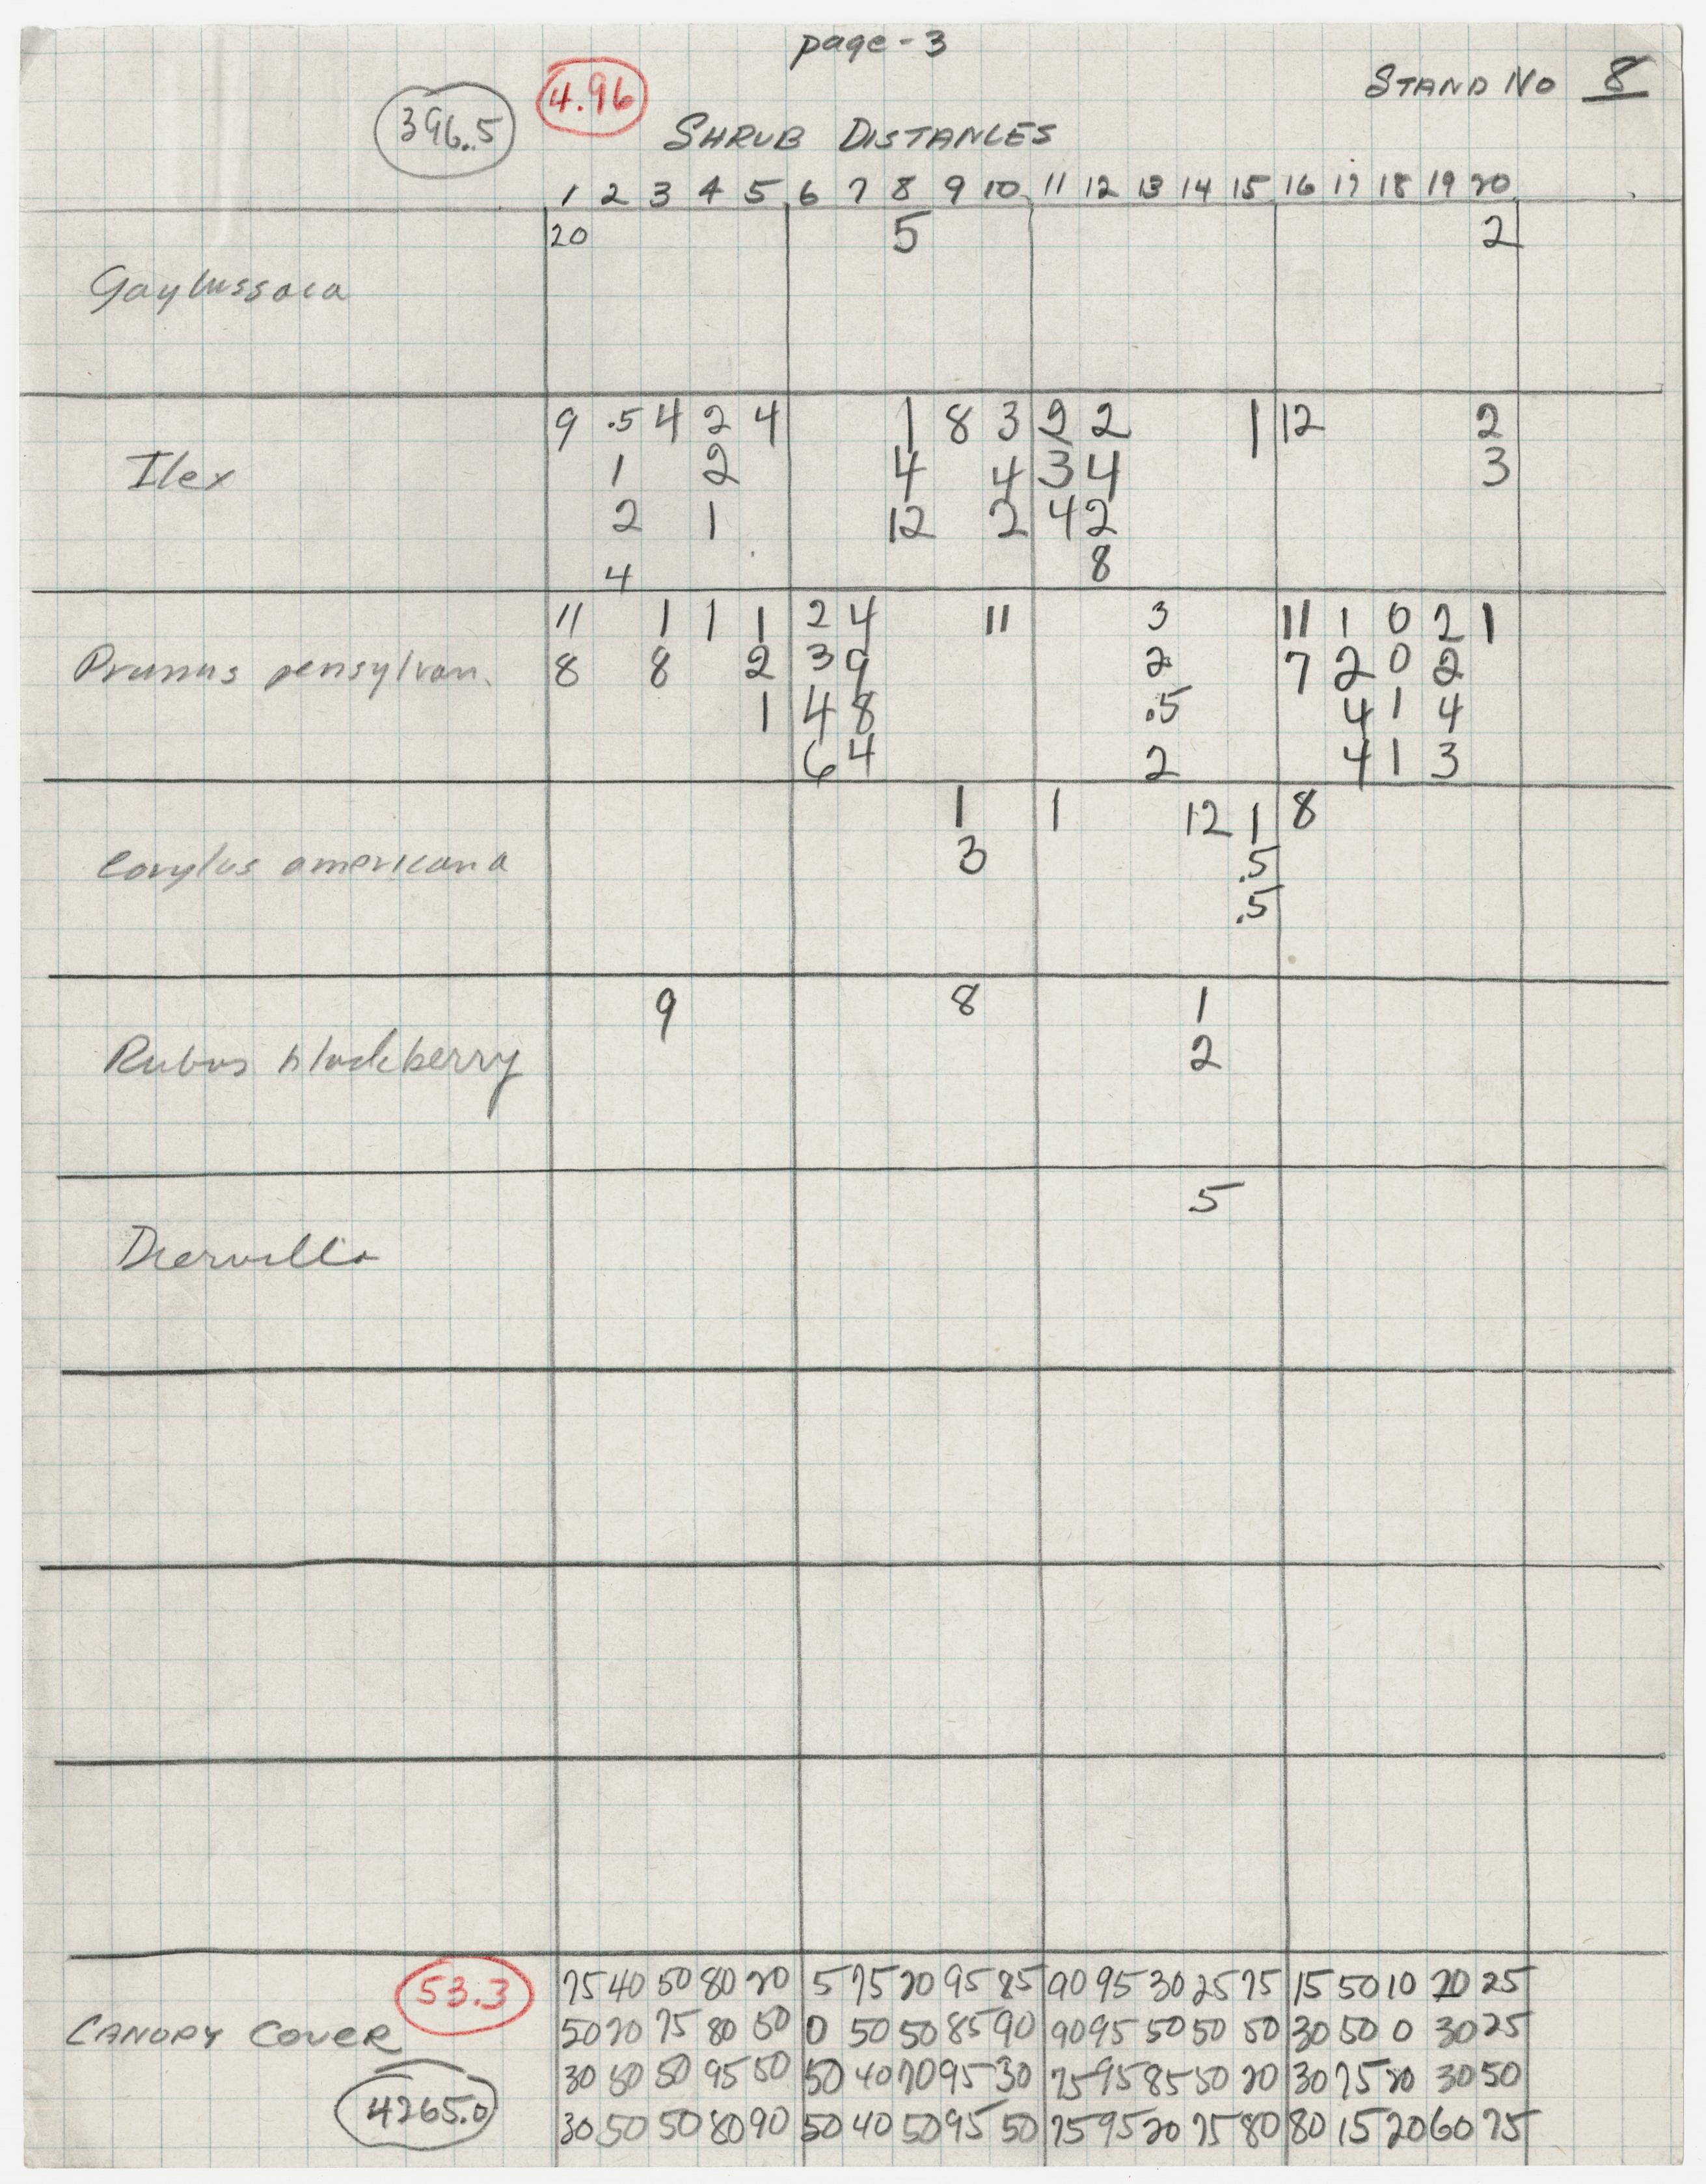 page - 3
STAND NO 8
396.5 4.96
SHRUB DISTANCES
1 2 3 4 5 6 7 8 9 10 11 12 13 14 15 16 17 18 19 20
20 5 2
Gaylussaca
9 .5 4 2 4 1 8 3 2 2 1 12 2
Ilex 1 2 4 4 3 4 3
2 1 12 2 4 2
4 8
11 1 1 1 2 4 11 3 11 1 0 2 1
Prunus pensylvan. 8 8 2 3 9 2 7 2 0 2
1 4 8 .5 4 1 4
6 4 2 4 1 3
1 1 12 1 8
Corylus americana 3 .5
.5
9 8 1
Rubus blackberry 2
.5
Diervilla
53.3 75 40 50 80 20 5 75 20 95 85 90 95 30 25 75 15 50 10 20 25
CANOPY COVER 50 20 75 80 50 0 50 50 85 90 90 95 50 50 50 30 50 0 30 25
30 60 50 95 50 50 40 70 95 30 75 95 85 50 20 30 75 20 30 50
4265.0 30 50 50 80 90 50 40 50 95 50 75 95 20 75 80 80 15 20 60 75